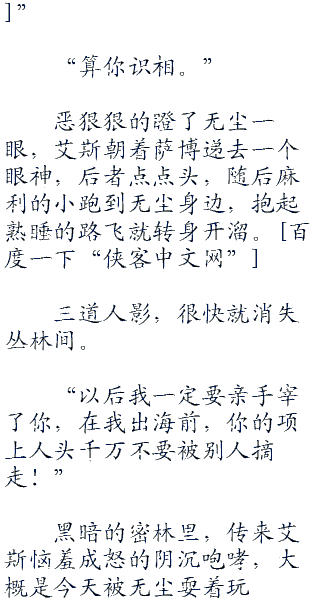 ]”
“算你识相。”
恶狠狠的瞪了无尘一
眼，艾斯朝着萨博递去一个
眼神，后者点点头，随后麻
利的小跑到无尘身边，抱起
熟睡的路飞就转身开溜。[百
度一下“侠客中文网”]
三道人影，很快就消失
丛林间。
“以后我一定要亲手宰
了你，在我出海前，你的项
上人头千万不要被别人摘
走！”
黑暗的密林里，传来艾
斯恼羞成怒的阴沉咆哮，大
概是今天被无尘耍着玩